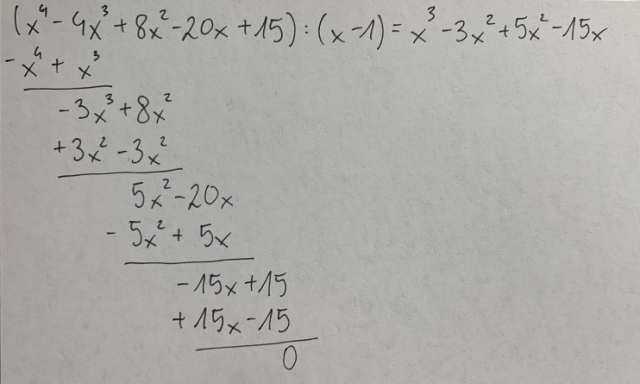 (x⁴ - 4x³ + 8x² - 20x + 15) : (x - 1) = x³ - 3x² + 5x² - 15x
- x⁴ + x³
- 3x³ + 8x²
+ 3x² - 3x²
5x² - 20x
- 5x² + 5x
- 15x + 15
+ 15x - 15
0